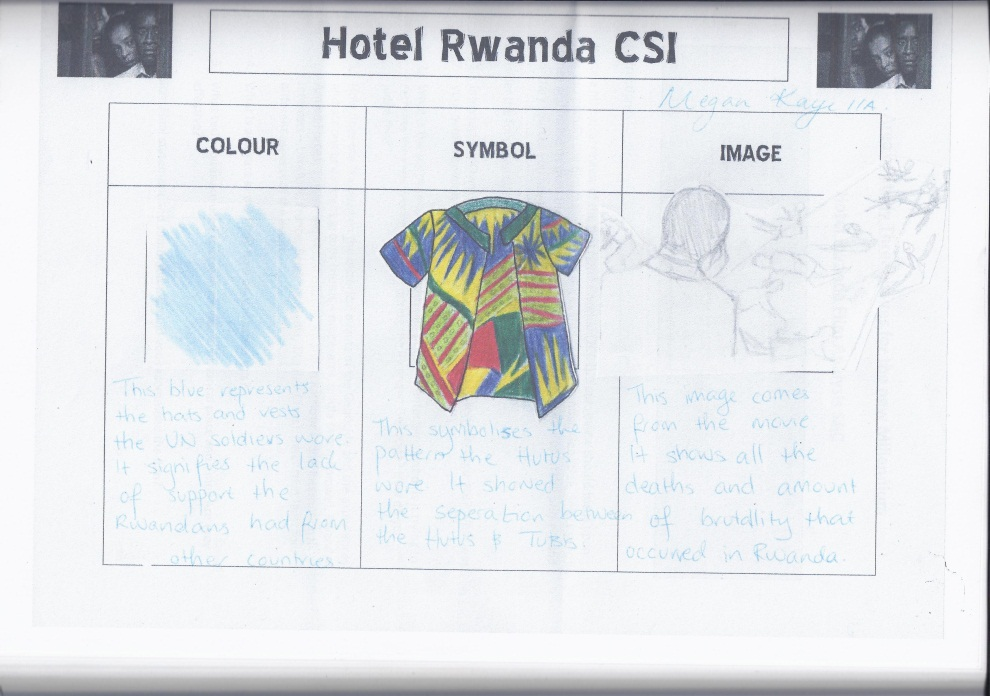 Hotel Rwanda CSI
Megan Kaye 11A
COLOUR
SYMBOL
IMAGE
This blue represents
the hats and vests
the UN soldiers wore.
It signifies the lack
of support the
Rwandans had from
other countries.
This symbolises the
pattern the Hutus
wore It showed
the seperation between
the Hutus &
This image comes
from the movie
It shows all the
deaths and amount
of brutality that
occured in Rwanda.